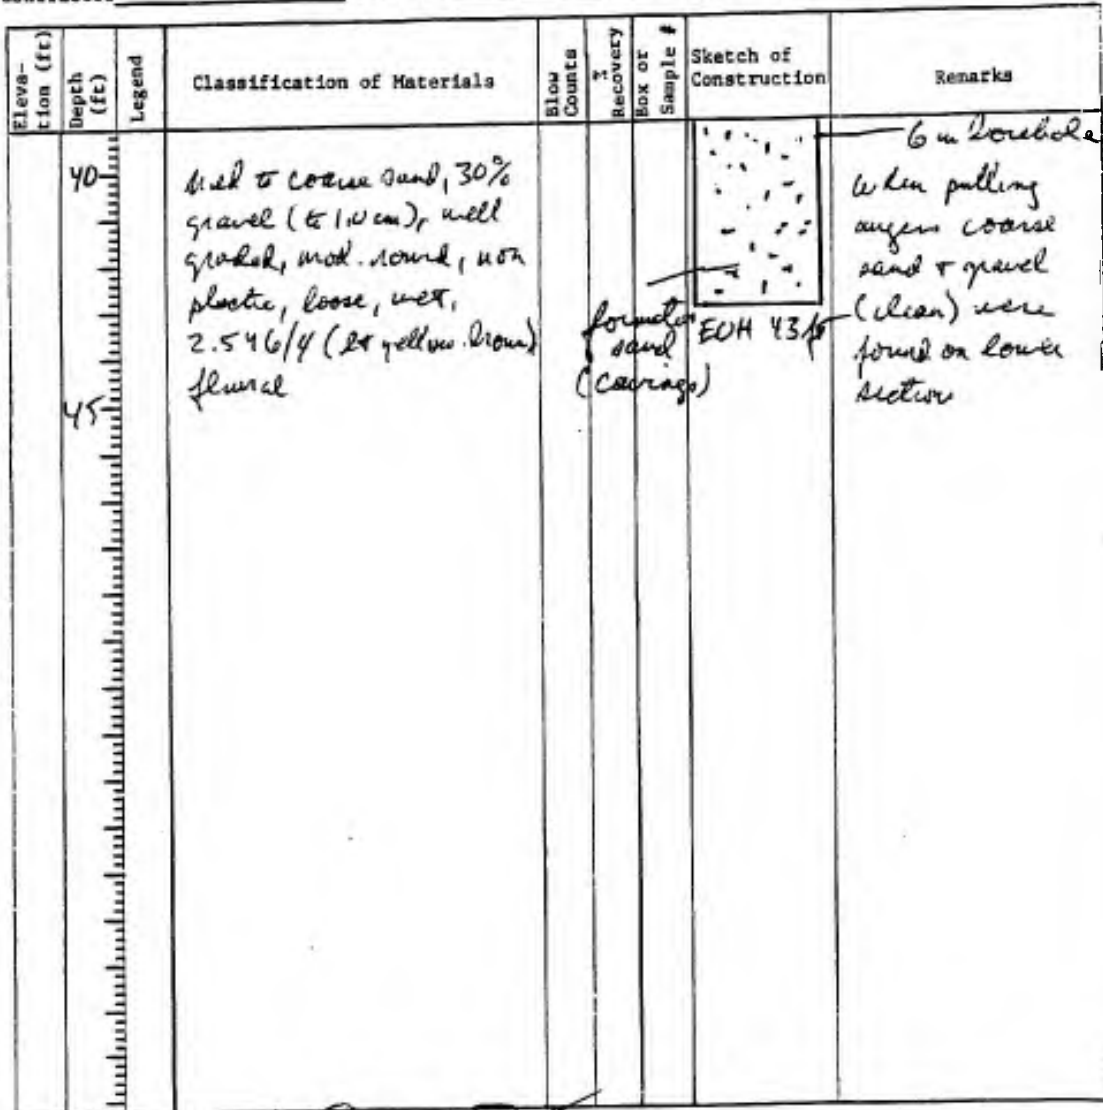 Eleva-
tion (ft)
Depth
(ft)
Legend
Classification of Materials
Blow
Counts
%
Recovery
Box or
Sample #
Sketch of
Construction
Remarks
40
45
Med to coarse sand, 30%
gravel (to 1.0 cm), well
graded, mod. round, non
plastic, loose, wet,
2.5Y6/4 (lt yellow. brown)
fluvial
formation
sand
(cavings)
EOH 43 ft
6 in borehole
When pulling
augers coarse
sand + gravel
(clean) were
found on lower
section